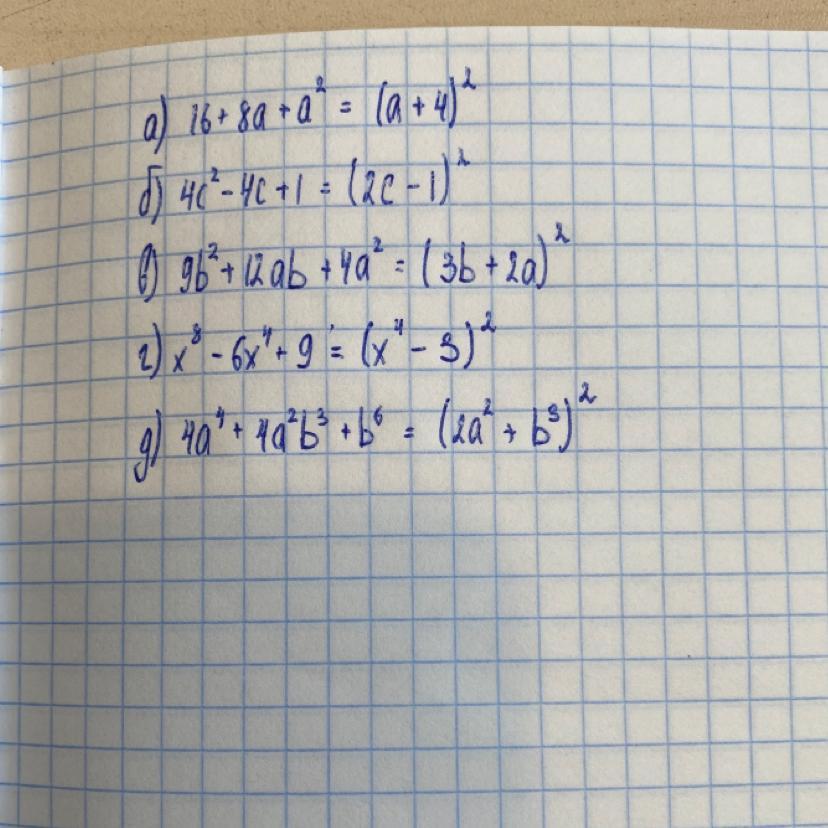 а) 16 + 8a + a² = (a + 4)²
б) 4c² - 4c + 1 = (2c - 1)²
в) 9b² + 12ab + 4a² = (3b + 2a)²
г) x⁸ - 6x⁴ + 9 = (x⁴ - 3)²
д) 4a⁴ + 4a²b³ + b⁶ = (2a² + b³)²